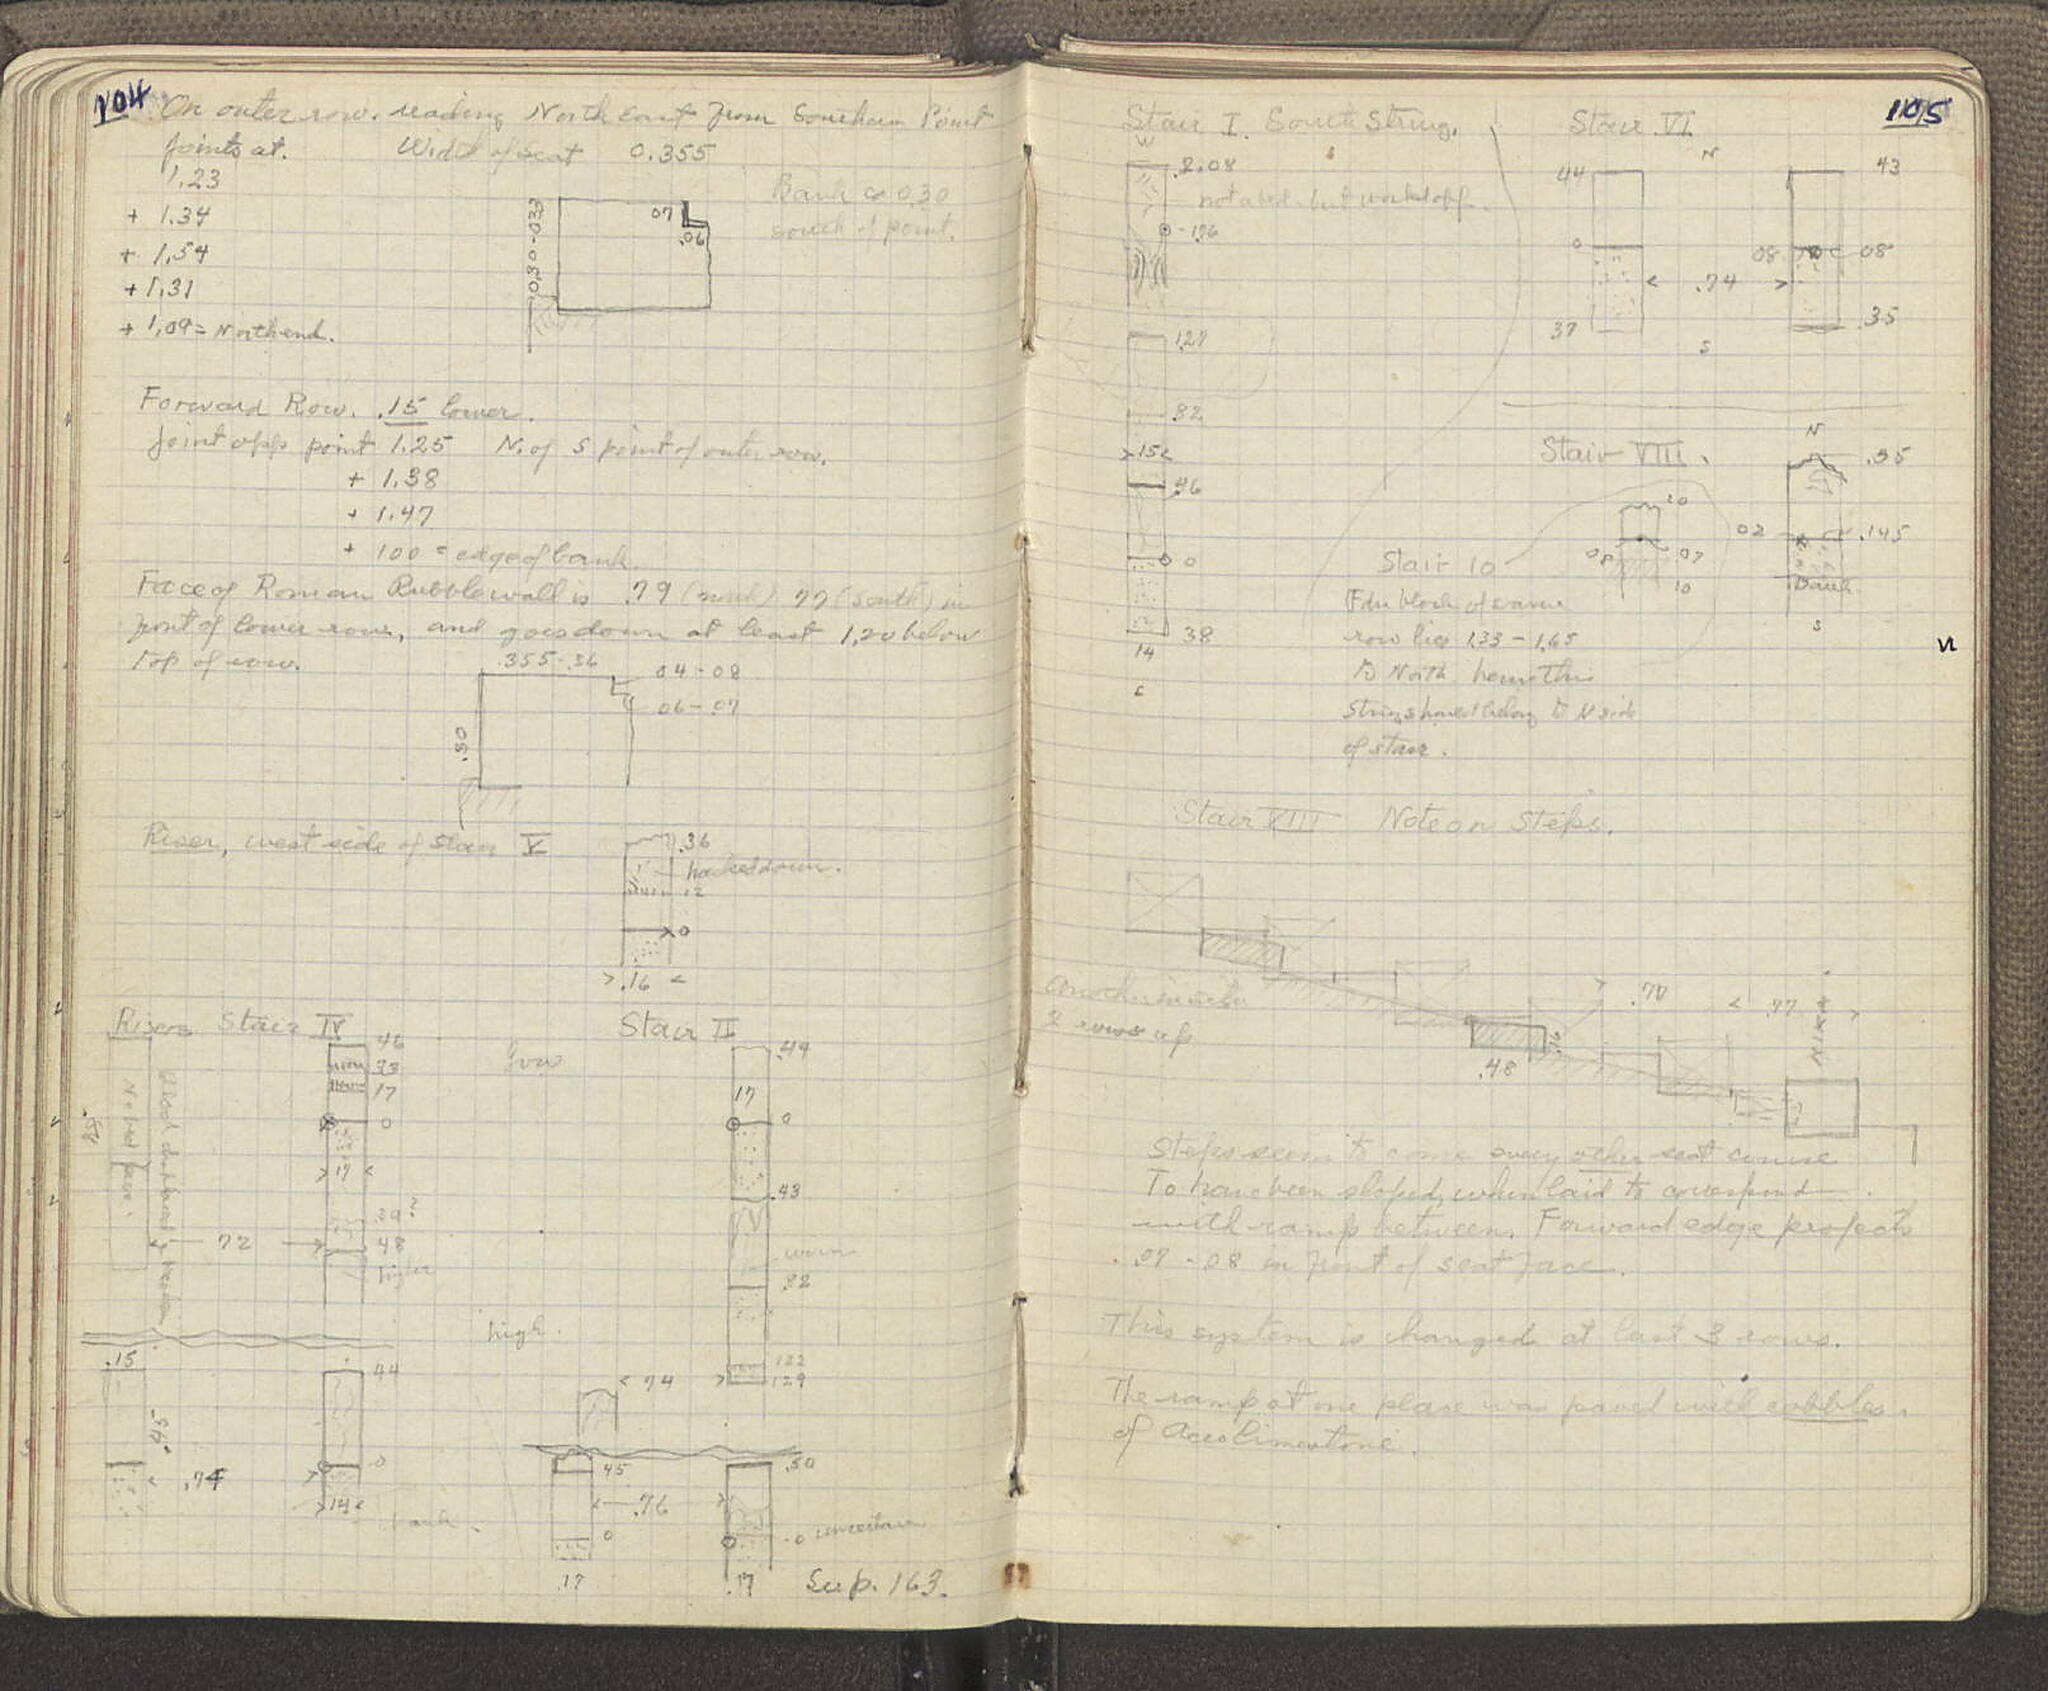 104
On outer row, reading North East from Southern Point
joints at. Width of seat 0.355
1.23
+ 1.34
+ 1.54
+ 1.31
+ 1.09 = North end.
0.30-033
07
.06
Bank
south of point.
Forward Row. .15 lower.
Joint opp point 1.25 N. of S point of outer row.
+ 1.38
+ 1.47
+ 100 = edge of bank.
Face of Roman Rubble wall is .79 (north) 77 (south) in
front of lower row, and goes down at least 1.20 below
top of row.
.355-.36
04-08
06-.07
.30
Riser, west side of Stair V
.36
hacked down.
.12
0
> .16 <
Risers Stair IV
46
33
17
0
> 17 <
39?
48
higher
72
low
Stair II
.49
17
0
.43
worn
.82
122
129
high.
< 74 >
.15
.74
44
0
> 14 <
bank.
45
< .76 >
0
.17
.50
-0 uncertain
.17
See p. 163.
105
Stair I. South String.
W
2.08
not but worked off.
127
.82
>15<
.46
0
38
14
Stair VI
N
44
0
37
< .74 >
43
08
08
.35
S
Stair VIII.
20
08
07
10
N
.35
02
.145
Bank
S
Stair 10
Fdn block of same
row lies 1.33 - 1.65
to North hence this
string should belong to N side
of stair.
Stair VIII Note on Steps.
Another in situ
2 rows up
.70
< .77 >
.48
.16
Steps seem to come every other seat course
To have been sloped, when laid to correspond
with ramp between. Forward edge projects
.07 - .08 in front of seat face.
This system is changed at last 3 rows.
The ramp at one place was paved with cobbles
of Acrolimestone.